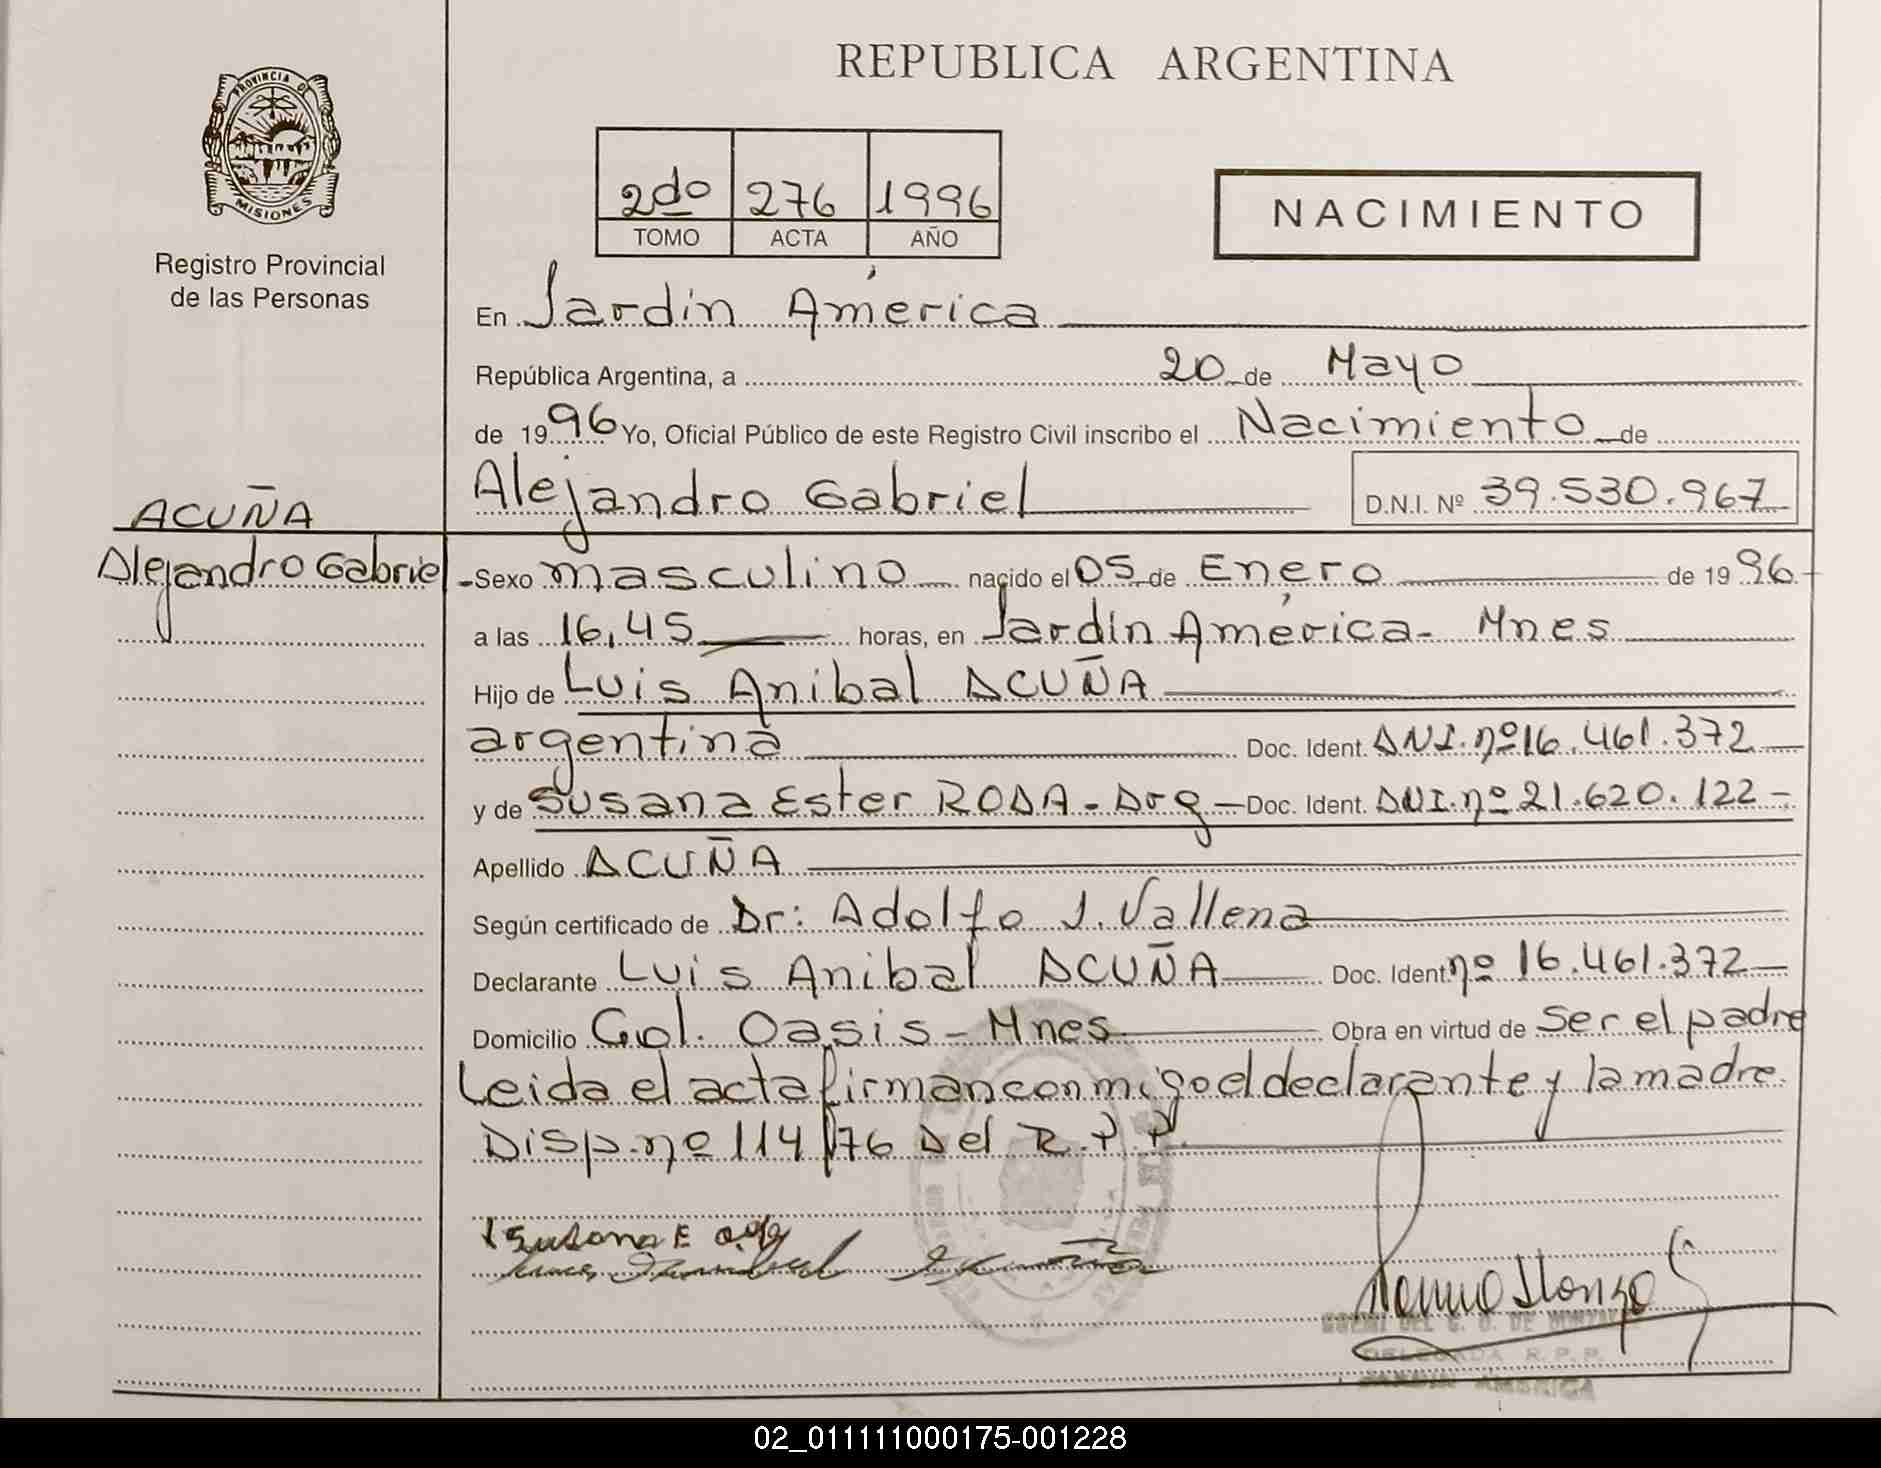 PROVINCIA DE
MISIONES
Registro Provincial
de las Personas
ACUÑA
Alejandro Gabriel
REPUBLICA ARGENTINA
2do 276 1996
TOMO ACTA AÑO
NACIMIENTO
En Jardín América
República Argentina, a 20 de Mayo
de 1996 Yo, Oficial Público de este Registro Civil inscribo el Nacimiento de
Alejandro Gabriel D.N.I. Nº 39.530.967
Sexo masculino nacido el 05 de Enero de 1996
a las 16,45 horas, en Jardín América - Mnes
Hijo de Luis Anibal ACUÑA
argentina Doc. Ident. DNI. nº 16.461.372
y de Susana Ester RODA - Arg - Doc. Ident. DNI. nº 21.620.122 -
Apellido ACUÑA
Según certificado de Dr: Adolfo J. Vallena
Declarante Luis Anibal ACUÑA Doc. Ident. nº 16.461.372
Domicilio Col. Oasis - Mnes Obra en virtud de Ser el padre
Leida el acta firman conmigo el declarante y la madre.
Disp. nº 114/76 Del R.P.P.
Susana E
DELEGADA R.P.P.
JARDIN AMERICA
02_011111000175-001228